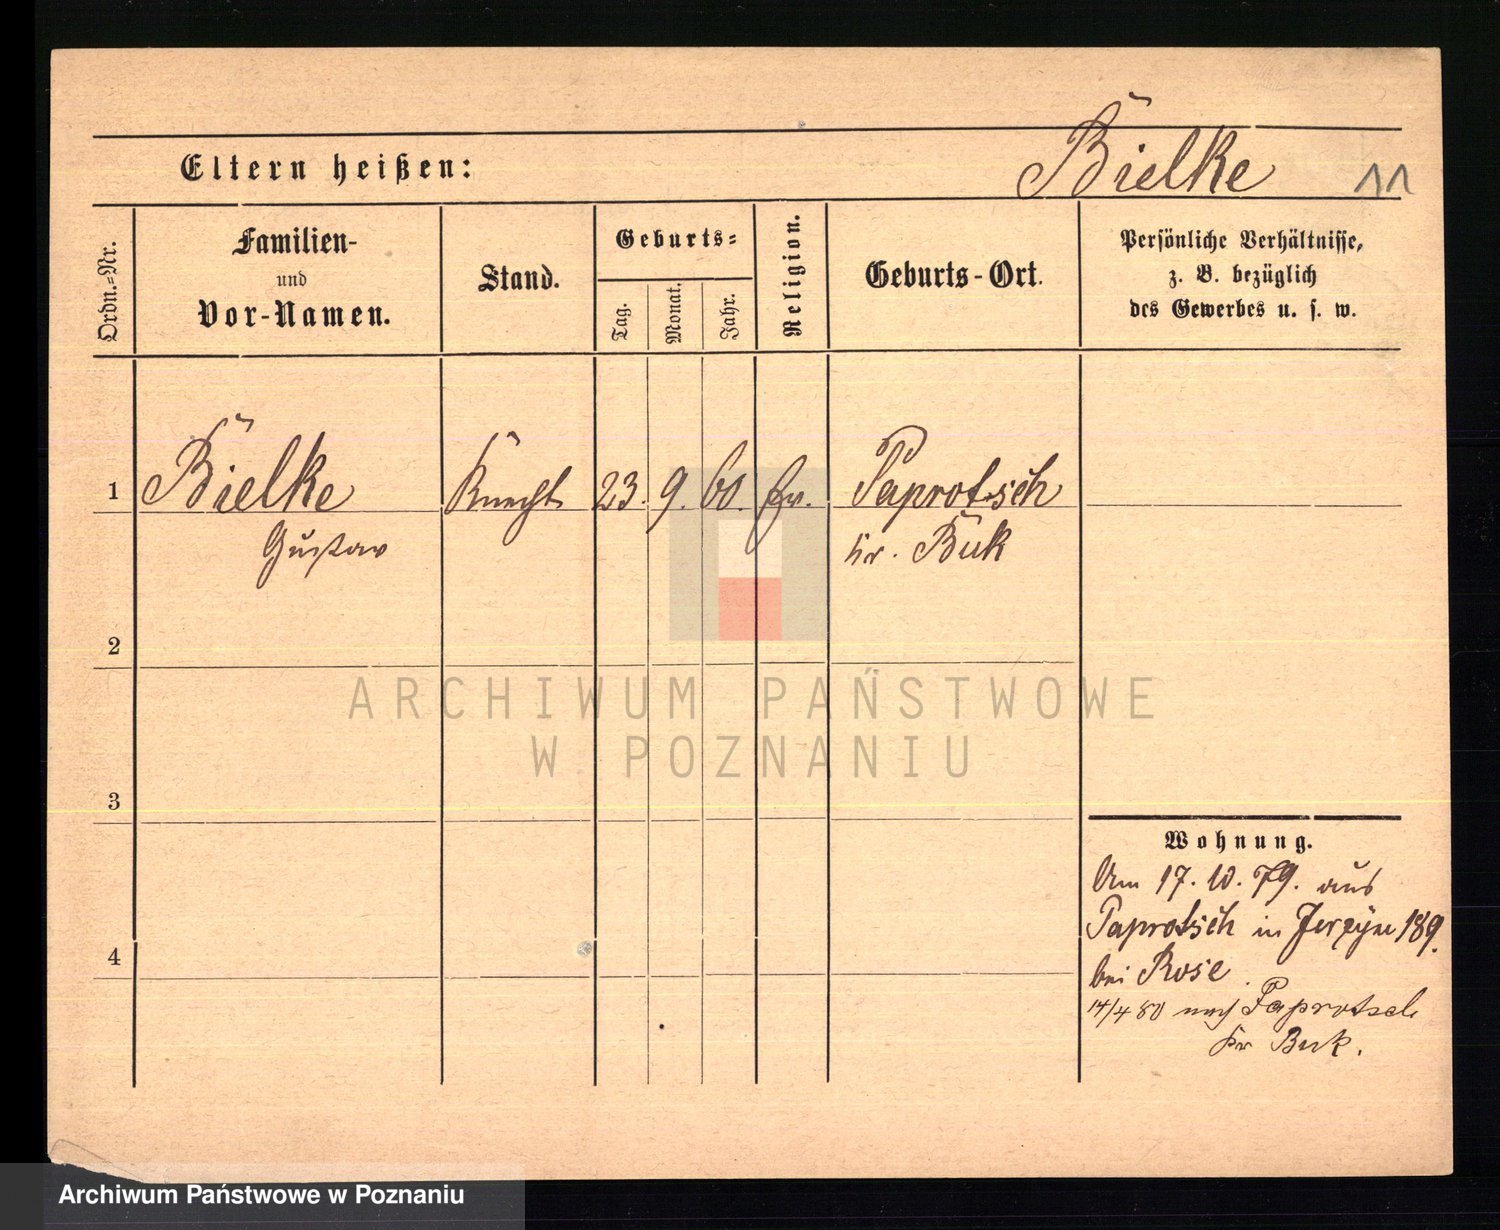 Bielke 11
Eltern heißen:
Ordn.=Nr.
Familien-
und
Vor-Namen.
Stand.
Geburts=
Tag.
Monat.
Jahr.
Religion.
Geburts-Ort.
Persönliche Verhältnisse,
z. B. bezüglich
des Gewerbes u. s. w.
1 Bielke Knecht 23. 9. 60. Ev. Paprotsch
Gustav Kr. Buk
2
ARCHIWUM PAŃSTWOWE
W POZNANIU
3
Wohnung.
Am 17. 10. 79. aus
Paprotsch in Jerzyce 189.
bei Rose.
4
14/4 80 nach Paprotsch
Kr Buk.
Archiwum Państwowe w Poznaniu